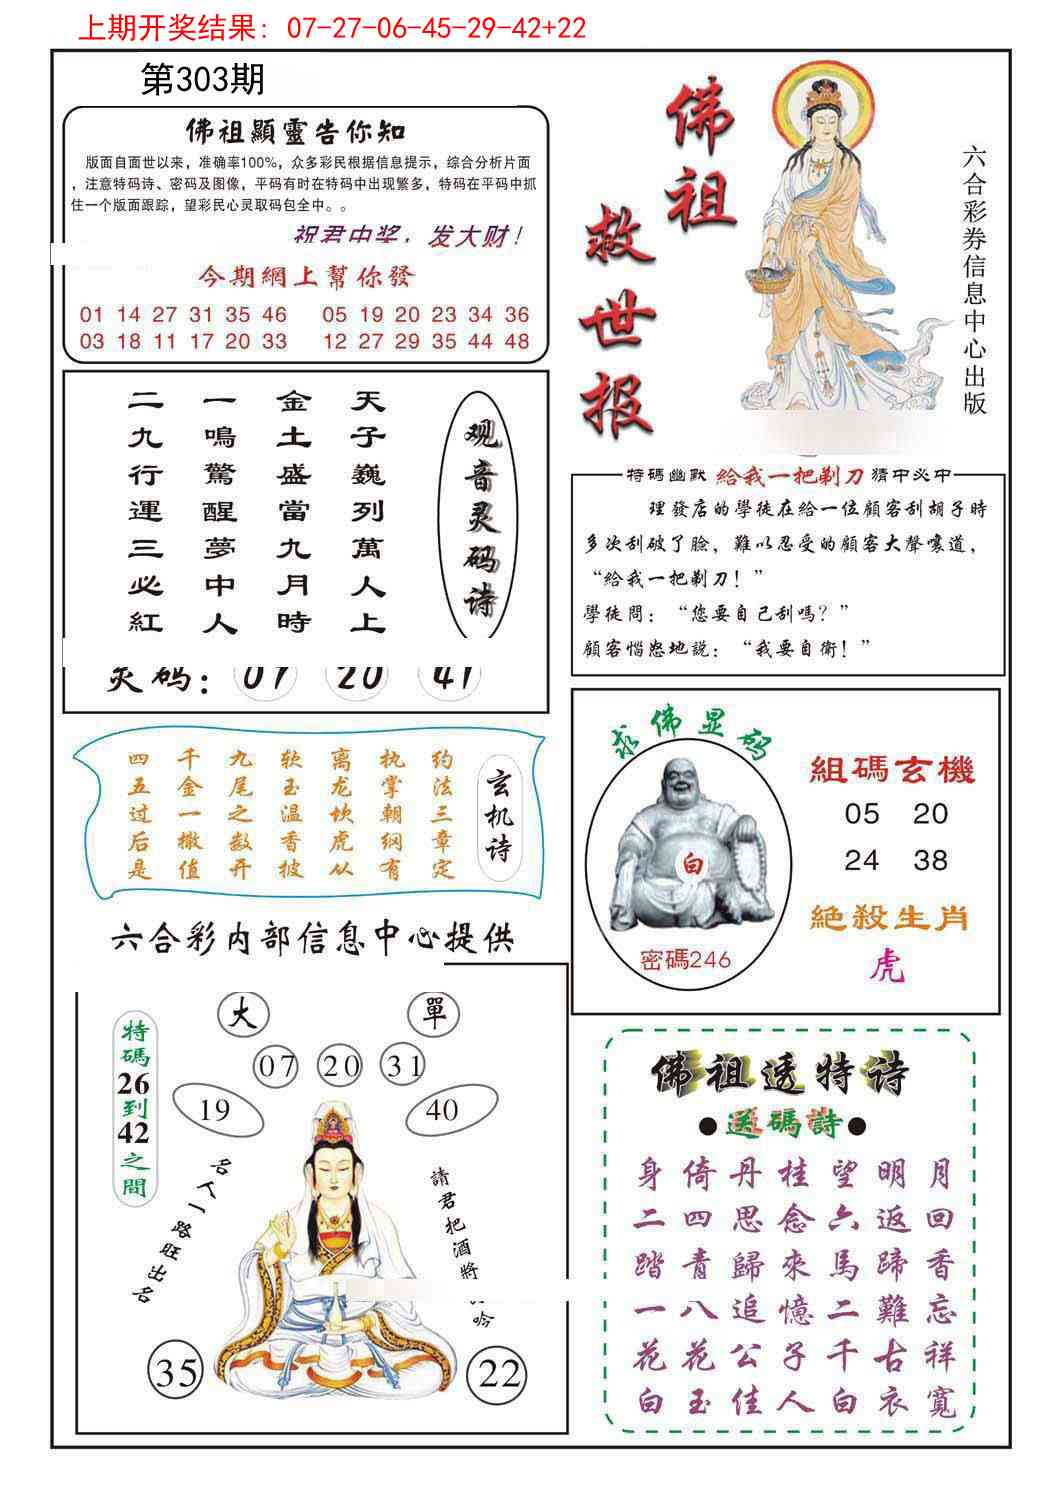 上期开奖结果：07-27-06-45-29-42+22
第303期
佛祖顯靈告你知
版面自面世以来，准确率100%，众多彩民根据信息提示，综合分析片面
，注意特码诗、密码及图像，平码有时在特码中出现繁多，特码在平码中抓
住一个版面跟踪，望彩民心灵取码包全中。。
祝君中奖，发大财！
今期網上幫你發
01 14 27 31 35 46 05 19 20 23 34 36
03 18 11 17 20 33 12 27 29 35 44 48
佛祖
救世报
六合彩券信息中心出版
观音灵码诗
天子巍列萬人上
金土盛當九月時
一鳴驚醒夢中人
二九行運三必紅
灵码：07 20 41
特碼幽默 給我一把剃刀 猜中必中
理發店的學徒在給一位顧客刮胡子時
多次刮破了臉，難以忍受的顧客大聲嚷道，
“給我一把剃刀！”
學徒問：“您要自己刮嗎？”
顧客惱怒地説：“我要自衛！”
玄机诗
约法三章定
执掌朝纲有
离龙坎虎从
软玉温香披
九尾之数开
千金一撒值
四五过后是
求佛显码
白
密碼246
組碼玄機
05 20
24 38
絕殺生肖
虎
六合彩内部信息中心提供
大 單
07 20 31
19 40
特碼26到42之間
名人一路旺出名
請君把酒將 吟
35 22
佛祖透特诗
●送碼詩●
身倚丹桂望明月
二四思念六返回
踏青歸來馬蹄香
一八追憶二難忘
花花公子千古祥
白玉佳人白衣寬